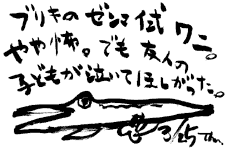 ブリキのゼンマイ式ワニ。
やや怖。でも友人の
子どもが泣いてほしがった。
3/25